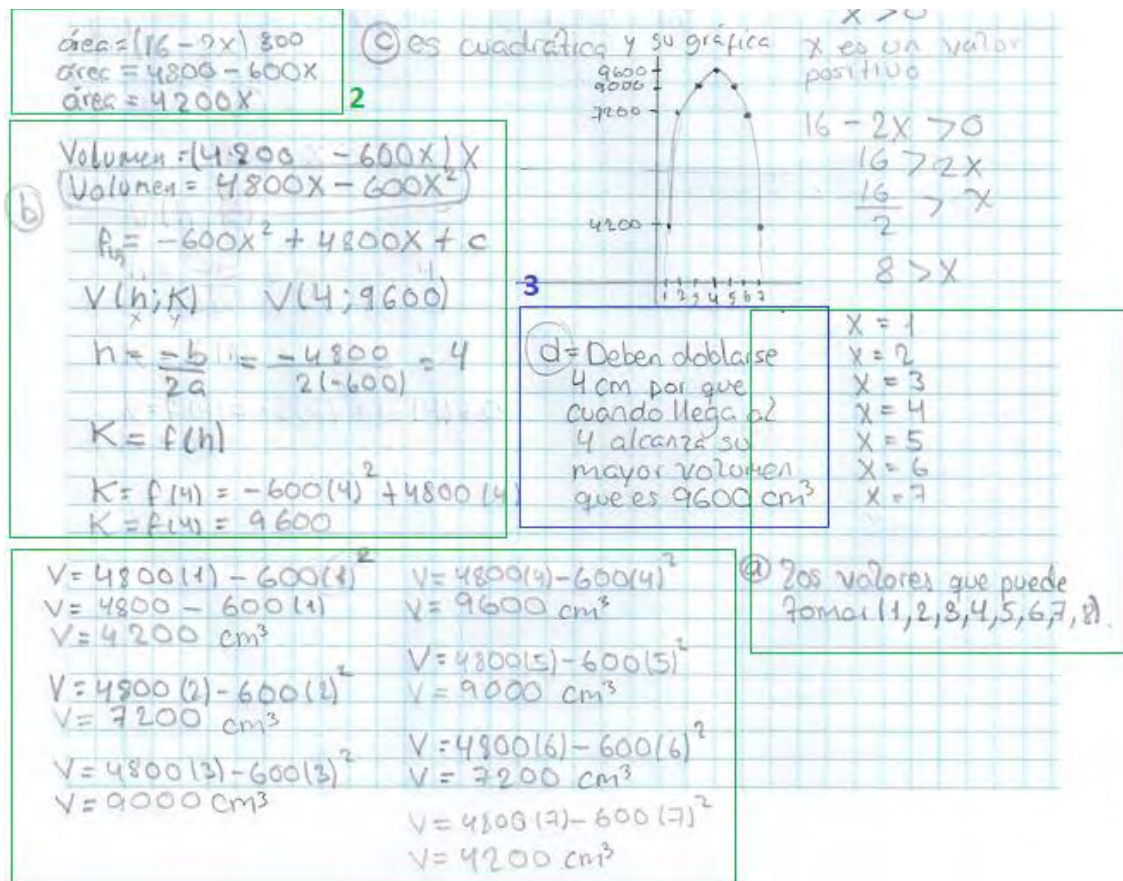 área = (16 - 2x) 300
área = 4800 - 600x
área = 4200x
2
Volumen = (4.800 - 600x) x
Volumen = 4800x - 600x²
b
f(x) = -600x² + 4800x + c
V(h; k) V(4; 9600)
x y
h = -b/2a = -4800/2(-600) = 4
K = f(h)
K = f(4) = -600(4)² + 4800(4)
K = f(4) = 9600
c es cuadrática y su gráfica
9600
9000
7200
4200
1 2 3 4 5 6 7
3
d = Deben doblarse
4 cm por que
cuando llega al
4 alcanza su
mayor volumen
que es 9600 cm³
x > 0
x es un valor
positivo
16 - 2x > 0
16 > 2x
16/2 > x
8 > x
x = 1
x = 2
x = 3
x = 4
x = 5
x = 6
x = 7
a los valores que puede
tomar (1, 2, 3, 4, 5, 6, 7, 8).
V = 4800(1) - 600(1)²
V = 4800 - 600(1)
V = 4200 cm³
V = 4800(2) - 600(2)²
V = 7200 cm³
V = 4800(3) - 600(3)²
V = 9000 cm³
V = 4800(4) - 600(4)²
V = 9600 cm³
V = 4800(5) - 600(5)²
V = 9000 cm³
V = 4800(6) - 600(6)²
V = 7200 cm³
V = 4800(7) - 600(7)²
V = 4200 cm³